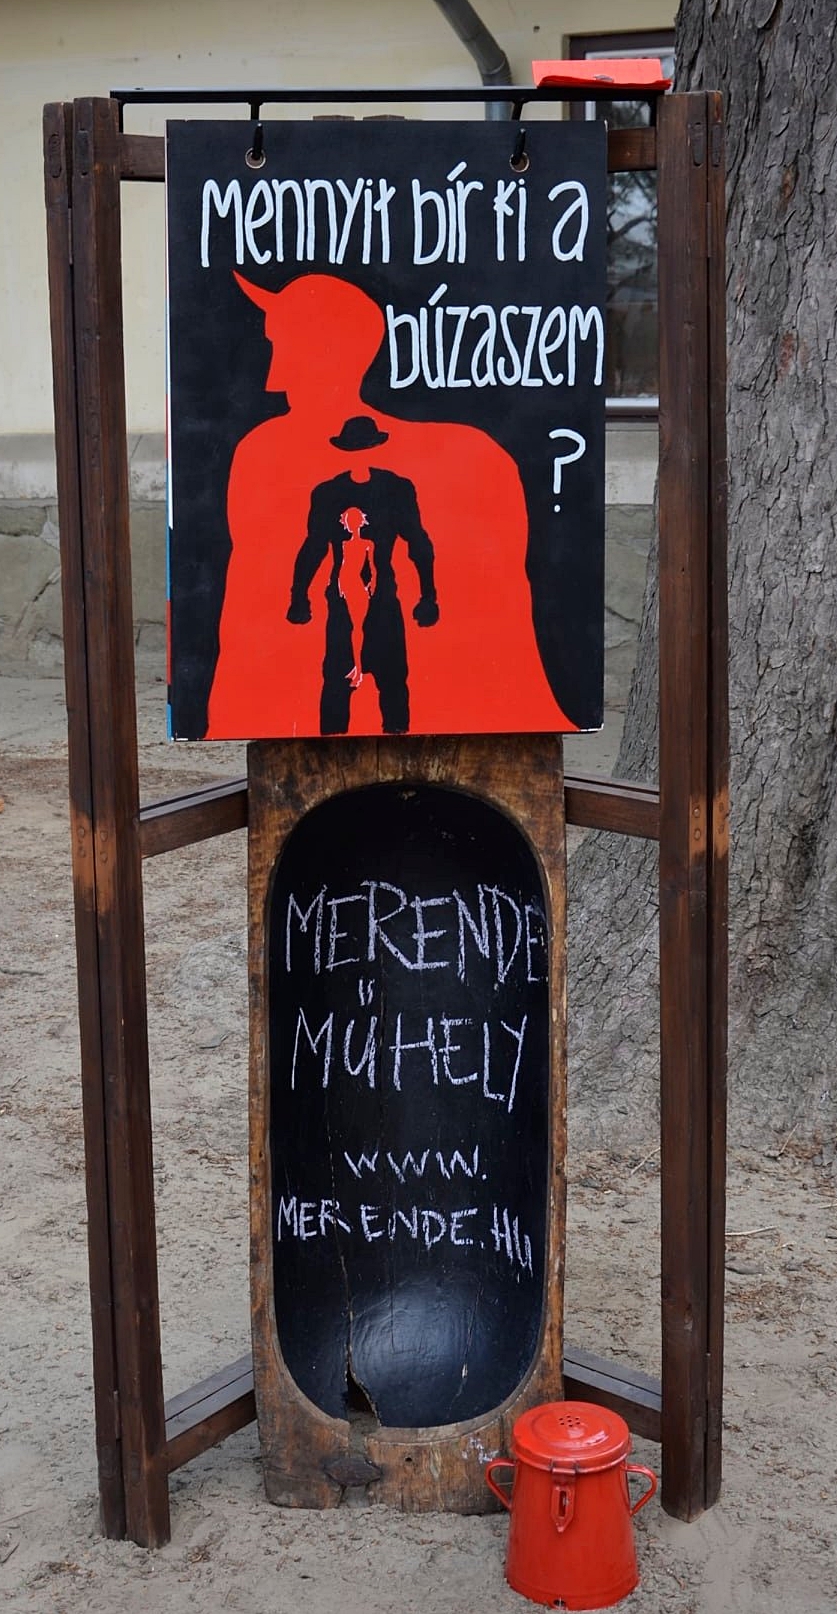 Mennyit bír ki a
búzaszem
?
MERENDE
MŰHELY
WWW.
MERENDE.HU